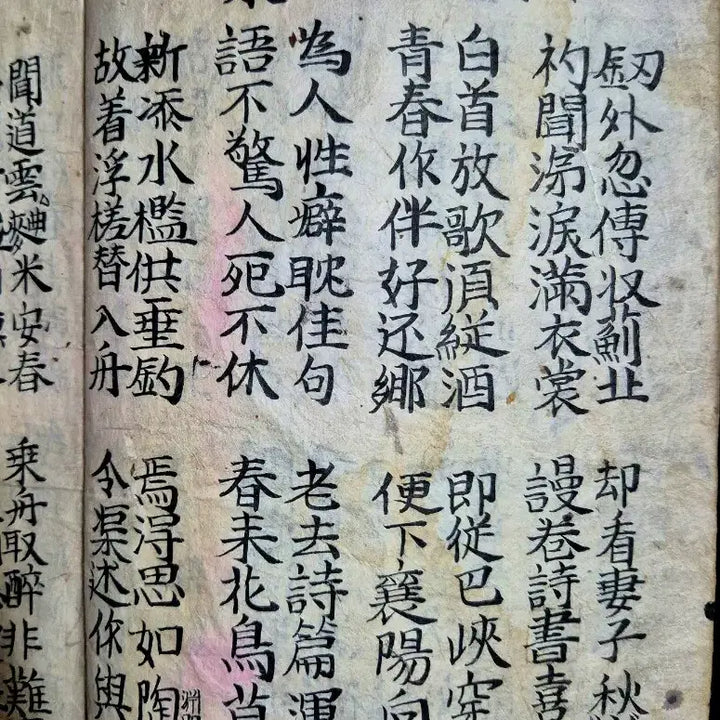 釼外忽傳収薊北 却看妻子秋
初聞涕淚滿衣裳 謾卷詩書喜
白首放歌須縦酒 即從巴峽穿
青春作伴好还鄉 便下襄陽向
為人性癖耽佳句 老去詩篇渾
語不驚人死不休 春来花鳥
新添水檻供垂釣 焉淂思如陶
故着浮槎替入舟 令渠述作與
聞道雲麯米安春 乗舟取醉非難